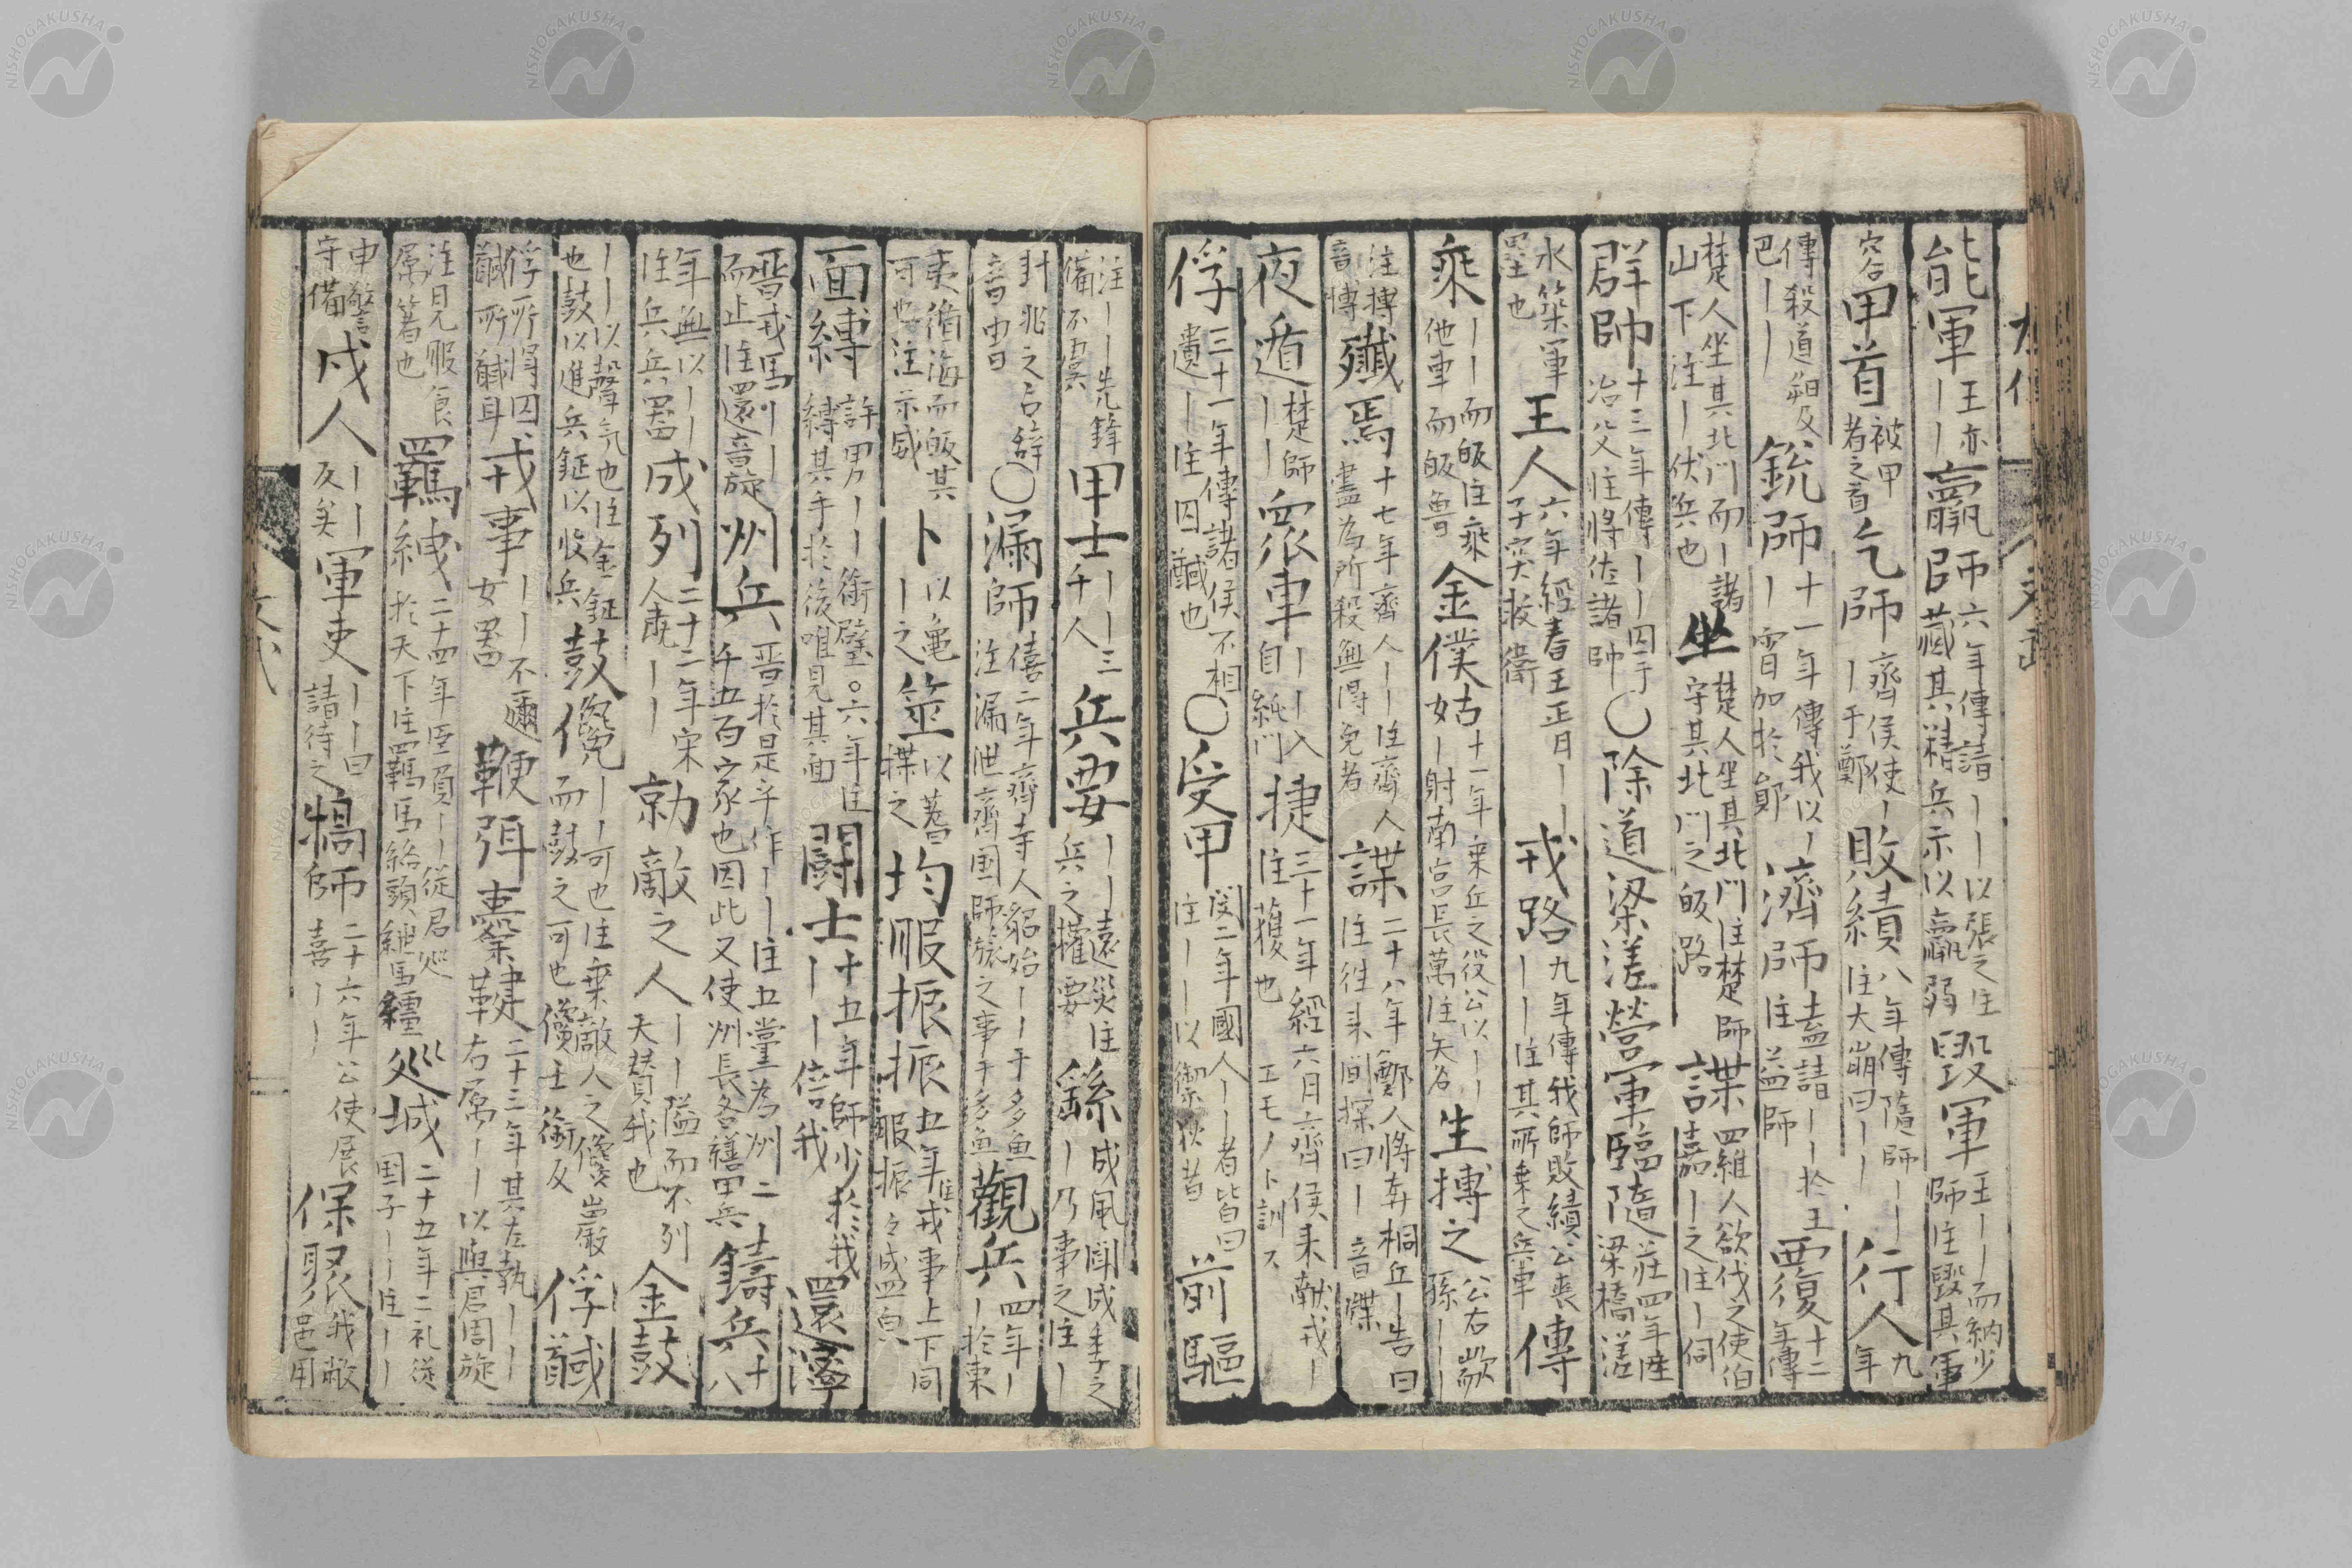 能軍 王亦｜｜｜ 羸師 六年傳請｜｜以張之注藏其精兵示以羸弱 毀軍 王｜｜而納少師注毀其軍
容 甲首 被甲者之首 乞師 齊侯使｜｜于鄭 敗績 八年傳隨師｜｜注大崩曰｜｜ 行人 九年
傳殺道朔及巴｜｜ 銳師 十一年傳我以｜｜宵加於鄖 濟師 盍請｜｜於王注益師 覆 十二年傳
楚人坐其北門而｜諸山下注｜伏兵也 坐 楚人坐其北門注楚師守其北門之皈路 諜 四羅人欲伐之使伯嘉｜之注｜伺
群帥 十三年傳｜｜囚于冶父注將佐諸帥 ○除道梁溠營軍臨隨 莊四年
水築軍壘也 王人 六年經春王正月｜｜子突救衛 戎路 九年傳我師敗績公喪｜｜注其所乘之兵車 傳
乘 ｜｜而皈注乘他車而皈魯 金僕姑 十一年乘丘之役公以｜｜｜射南宮長萬注矢名 生搏之 公右歂孫｜｜｜
注搏音博 殲焉 十七年齊人｜｜注齊人盡為所殺無得免者 諜 二十八年鄭人將奔桐丘｜告曰注往来間探曰｜音牒
夜遁 楚師｜｜ 衆車 ｜｜入自純門 捷 三十一年經六月齊侯来献戎｜注獲也 エモノト訓ス
俘 三十一年傳諸侯不相遺｜注囚馘也 ○受甲 閔二年國人｜｜者皆曰注｜｜以禦狄者 前驅
注｜｜先鋒備不虞 甲士 ｜｜三千人 兵要 ｜｜遠災注兵之權要 繇 成風聞成季之｜乃事之注｜
卦兆之占辭音由 ○漏師 僖二年齊寺人貂始｜｜于多魚注漏泄齊国師旅之事于多魚 觀兵 四年｜｜於東
夷循海而皈其可也注示威 卜 以亀｜之 筮 以蓍揲之 均服振振 五年傳戎事上下同服振々盛皃
面縛 許男｜｜銜璧○六年注縛其手於後唯見其面 鬪士 十五年師少於我｜｜倍我 還濘
晋戎馬｜｜而止注還音旋 州兵 晋於是乎作｜｜注五黨為州二千五百家也因此又使州長各繕甲兵 鑄兵 十八
年無以｜｜注兵兵器 成列 二十二年宋人既｜｜ 勍敵之人 ｜｜隘而不列天賛我也 金鼓
｜｜以聲气也注金鉦也鼓以進兵鉦以收兵 鼓儳 ｜｜可也注乘敵人之儳嵒而鼓之可也儳士衘反 俘馘
俘所得囚馘所馘耳 戎事 ｜｜不邇女器 鞭弭櫜鞬 二十三年其左執｜｜右属｜｜以與君周旋
注見服食属著也 羈紲 二十四年臣負｜｜從君巡於天下注羈馬絡頭紲馬韁 巡城 二十五年二礼從国子｜｜注｜｜
申警守備 戍人 ｜｜反矣 軍吏 ｜｜曰請待之 犒師 二十六年公使展喜｜｜ 保聚 我敝邑用